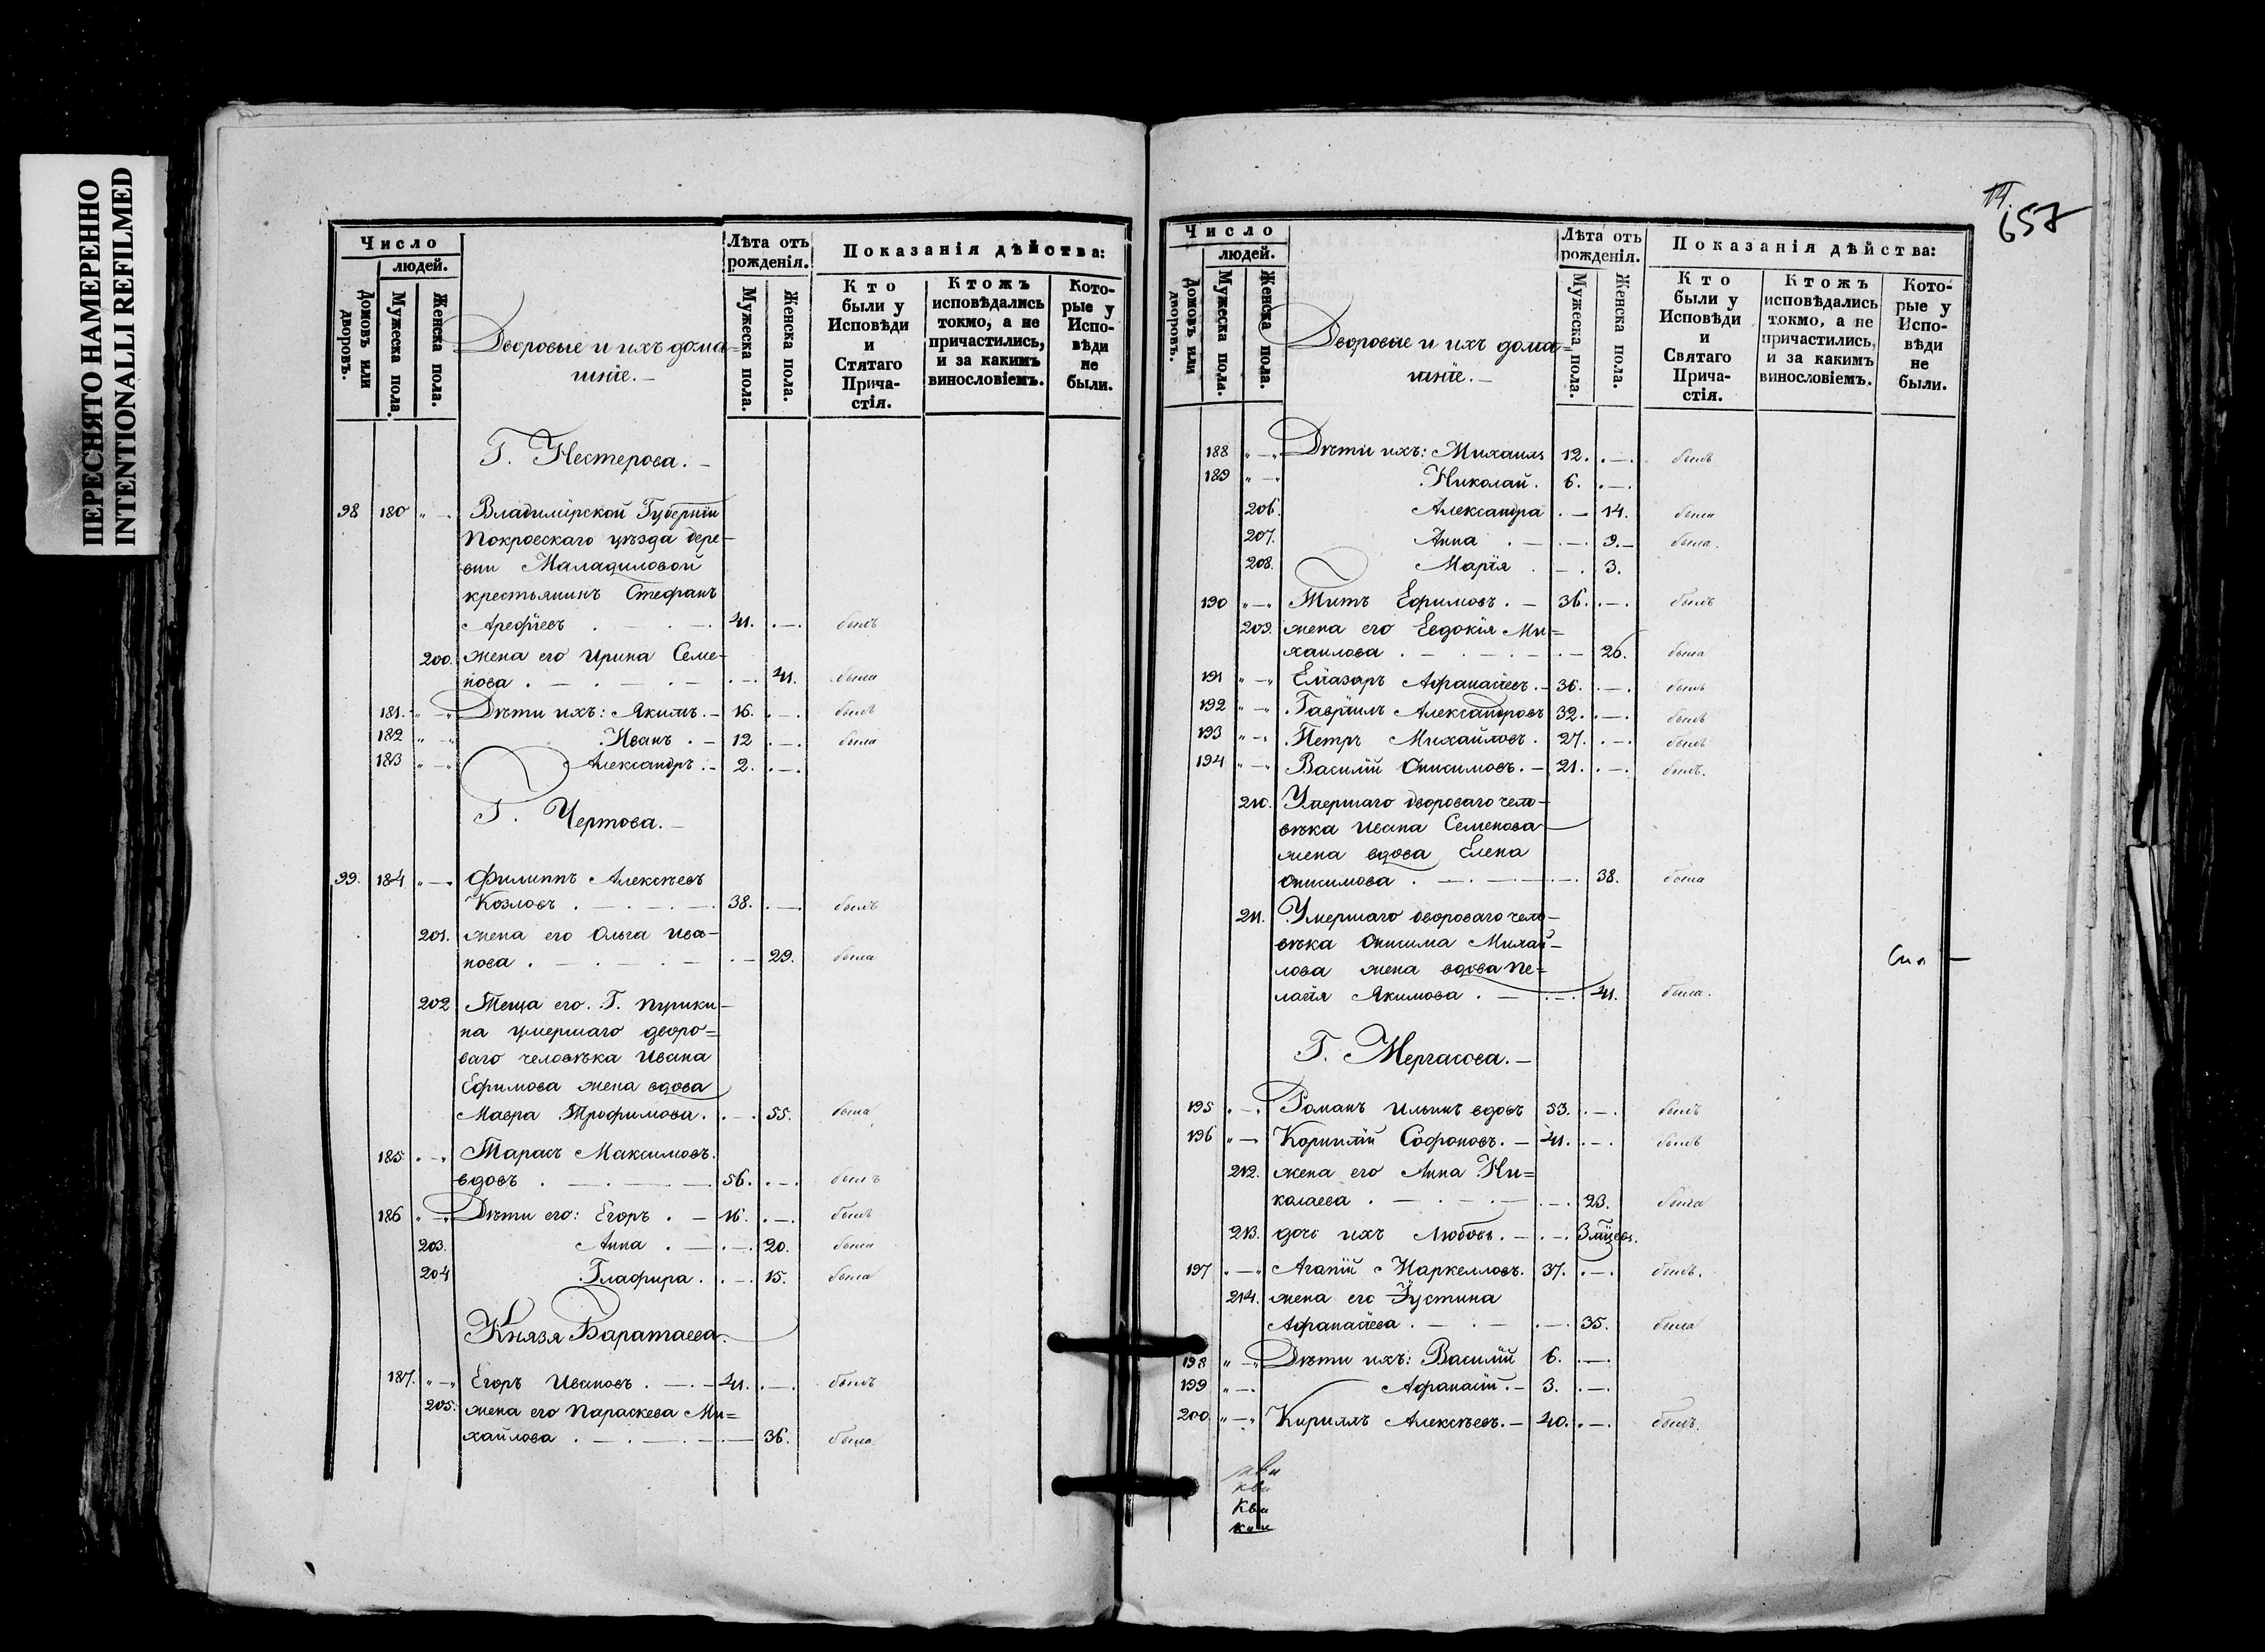 ПЕРЕСНЯТО НАМЕРЕННО
INTENTIONALLI REFILMED
Число
людей.
Домовъ или дворовъ.
Мужеска пола.
Женска пола.
Дворовые и ихъ дома=
шніе.—
Лѣта отъ рожденія.
Мужеска пола.
Женска пола.
Показанія дѣйства:
Кто были у Исповѣди и Стятаго Прича-стія.
Ктожъ исповѣдались токмо, а не причастились, и за какимъ винословіемъ.
Кото-рые у Испо-вѣди не были.
Г. Нестерова.—
98 180 „ — Владимірской Губерніи
Покровскаго уѣзда дере-
вни Маладиловой
крестьянинъ Стефанъ
Арефіевъ . — . — . 41. . — . былъ
200. жена его Ирина Семе-
нова . — . — . — . — . 41. была
181. „ — „ Дѣти ихъ: Якимъ. — 16. . — . былъ
182 „ — „ Иванъ . — 12 . — . была
183 „ — „ Александръ . — 2. . — .
Г. Чертова.—
99. 184 „ — „ Филиппъ Алексѣевъ
Козловъ . — . — . 38. . — . былъ
201. жена его Ольга Ива-
нова . — . — . — . — 29. была
202 Теща его. Г. Пурики-
на умершаго дворо=
ваго человѣка Ивана
Ефимова жена вдова
Мавра Трофимова. . — . 55. была
185 . — „ Тарасъ Максимовъ.
вдовъ . — . — . 56. . — . былъ
186 „ — „ Дѣти его: Егоръ . — 16. . — . былъ
203. Анна . — . — . 20. была
204 Глафира . . — . 15. была
Князя Баратаева.
187. „ — „ Егоръ Ивановъ . — . — 41. . — . былъ
205. жена его Параскева Ми=
хайлова . — . — . — 36. была
14.
657
Число
людей.
Домовъ или дворовъ.
Мужеска пола.
Женска пола.
Дворовые и ихъ дома=
шніе.—
Лѣта отъ рожденія.
Мужеска пола.
Женска пола.
Показанія дѣйства:
Кто были у Исповѣди и Святаго Прича-стія.
Ктожъ исповѣдались токмо, а не причастились, и за какимъ винословіемъ.
Кото-рые у Испо-вѣди не были.
188 „ — „ Дѣти ихъ: Михаилъ 12. . — . былъ
189 „ — „ Николай. 6. . — .
206. Александра . — 14. была
207. Анна . — . — . 9. — была.
208. Марія . — . 3.
190 „ — „ Титъ Ефимовъ. — 36. . — . былъ
209. жена его Евдокія Ми=
хаилова . — . — . — . — 26. была
191 „ — „ Елїазаръ Афанасіевъ. — 36. . — . былъ
192 „ — „ Гавріилъ Александровъ 32. . — . былъ
193 „ — „ Петръ Михайловъ. 27. . — . былъ
194 „ — „ Василій Онисимовъ. — 21. . — . былъ.
210. Умершаго двороваго чело-
вѣка Ивана Семенова
жена вдова Елена
Онисимова . — . — . — . 38. была
211. Умершаго двороваго чело-
вѣка Онисима Михай-
лова жена вдова Пе=
лагія Якимова . — . — . 41. была.
Г. Мергасова.—
195 „ — „ Романъ Ильинъ вдовъ 53. . — . былъ
196 „ — „ Корнилій Софоновъ. — 41. . — . былъ
212. жена его Анна Ни=
колаева . — . — . — . — . 23. была
213. дочь ихъ Любовь. — . — 3 мѣцевъ.
197 „ — „ Агапій Маркелловъ. 37. . — . былъ.
214. жена его Іустина
Афанасіева . — . — . — . 35. была
198 „ — „ Дѣти ихъ: Василій 6. . — .
199 „ — . Афанасій. — 3. . — .
200. „ — „ Кириллъ Алексѣевъ. — 40. . — . былъ.